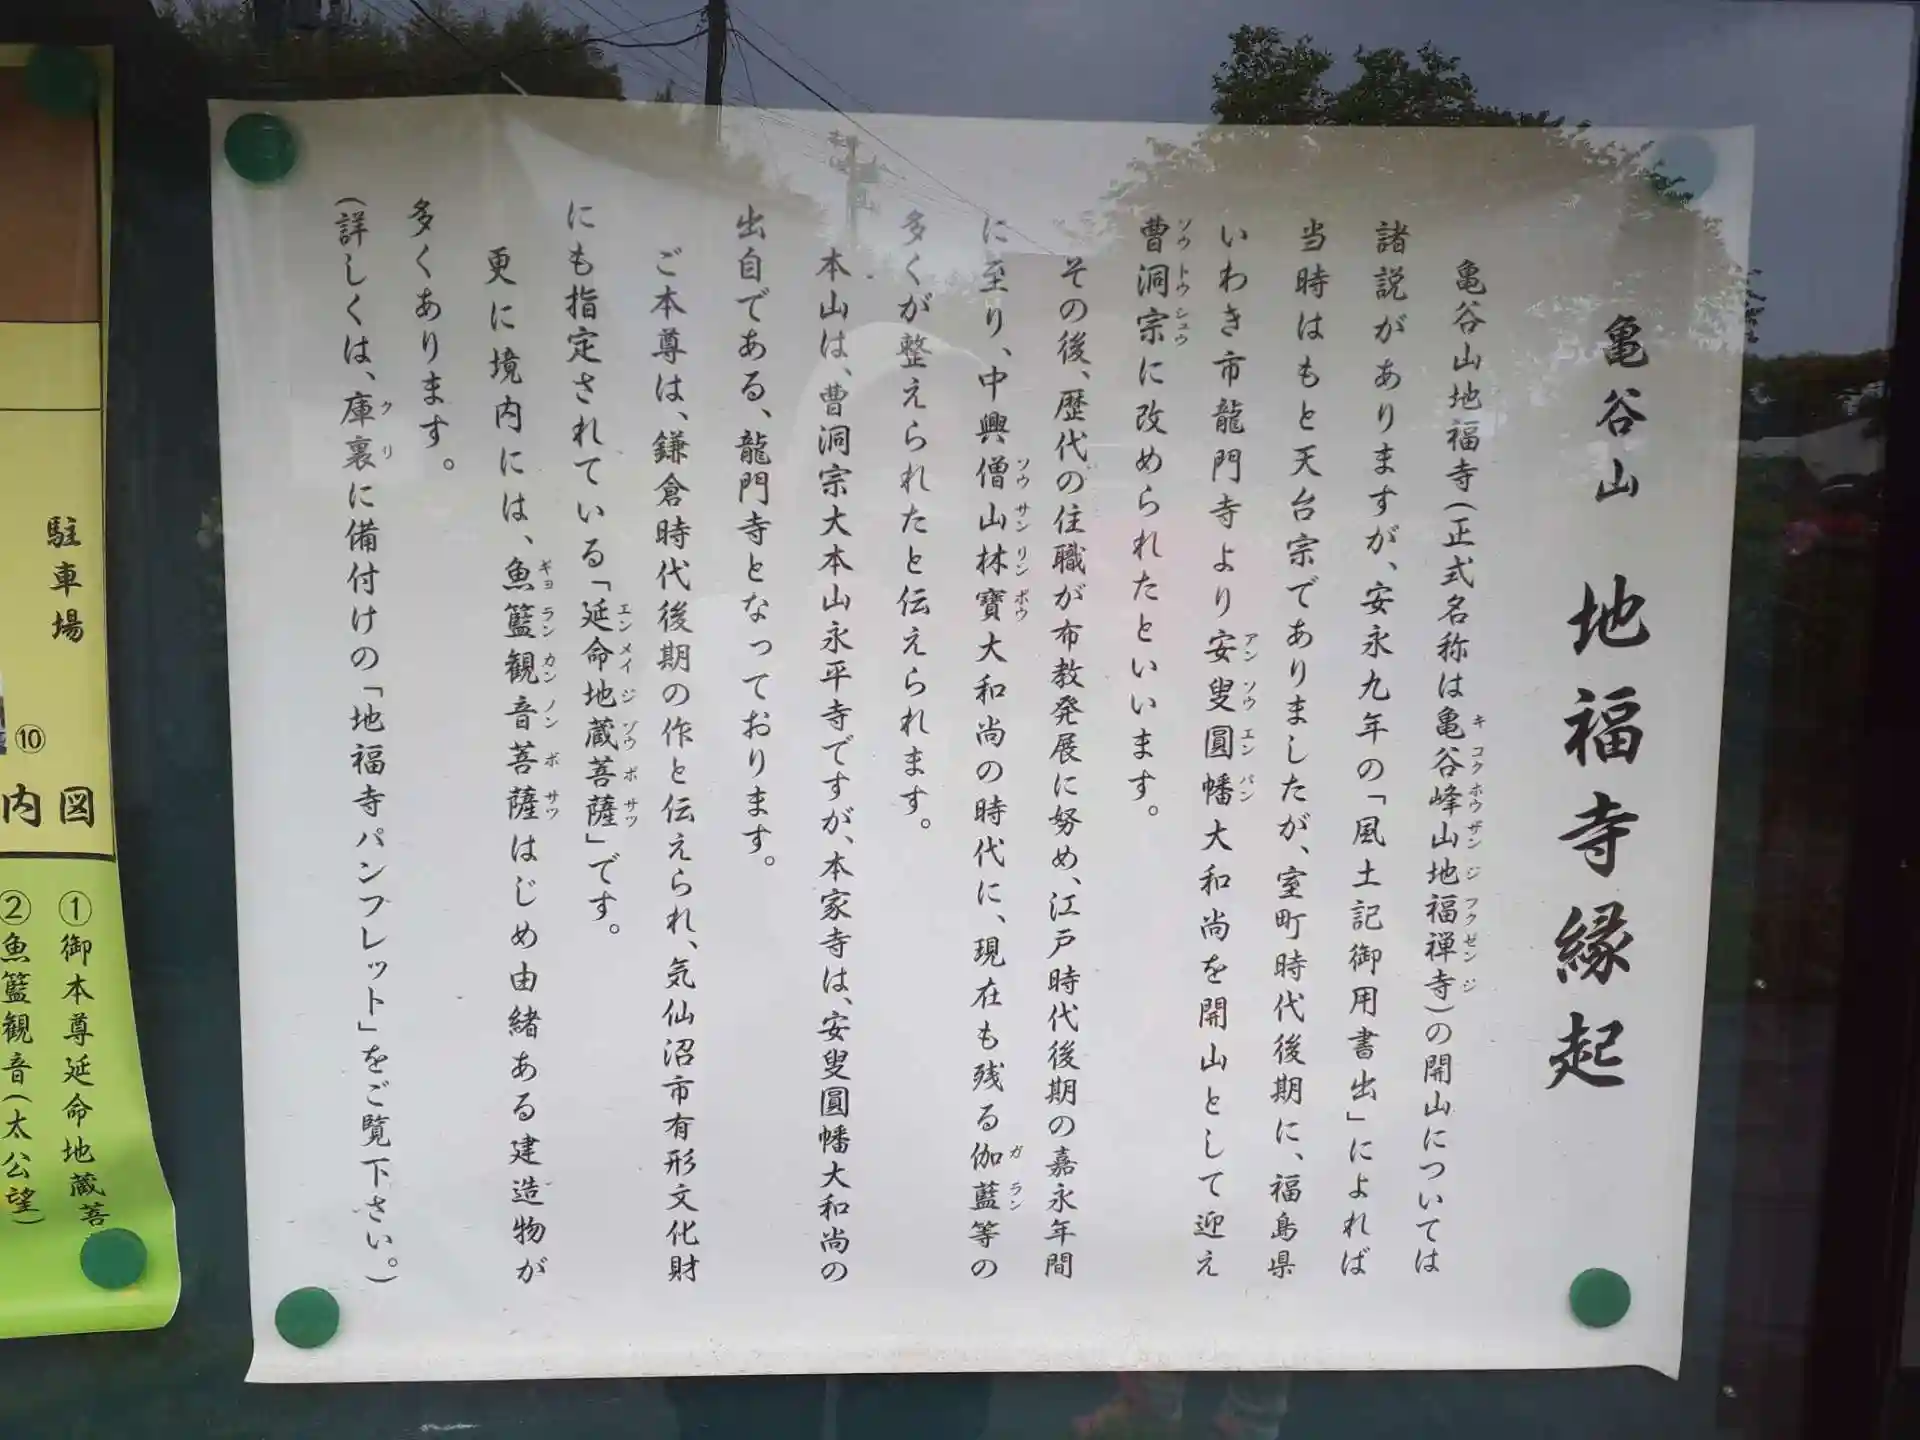 亀谷山 地福寺縁起
亀谷山地福寺(正式名称は亀谷峰山地福禅寺)の開山については
キコクホウザンジフクゼンジ
諸説がありますが、安永九年の「風土記御用書出」によれば
当時はもと天台宗でありましたが、室町時代後期に、福島県
いわき市龍門寺より安叟圓幡大和尚を開山として迎え
アンソウエンバン
曹洞宗に改められたといいます。
ソウトウシュウ
その後、歴代の住職が布教発展に努め、江戸時代後期の嘉永年間
に至り、中興僧山林寶大和尚の時代に、現在も残る伽藍等の
ソウサンリンボウ
ガラン
多くが整えられたと伝えられます。
本山は、曹洞宗大本山永平寺ですが、本家寺は、安叟圓幡大和尚の
出自である、龍門寺となっております。
ご本尊は、鎌倉時代後期の作と伝えられ、気仙沼市有形文化財
にも指定されている「延命地蔵菩薩」です。
エンメイジゾウボサツ
更に境内には、魚籃観音菩薩はじめ由緒ある建造物が
ギョランカンノンボサツ
多くあります。
(詳しくは、庫裏に備付けの「地福寺パンフレット」をご覧下さい。)
クリ
駐車場
⑩
図
内
①御本尊延命地蔵菩
②魚籃観音(太公望)